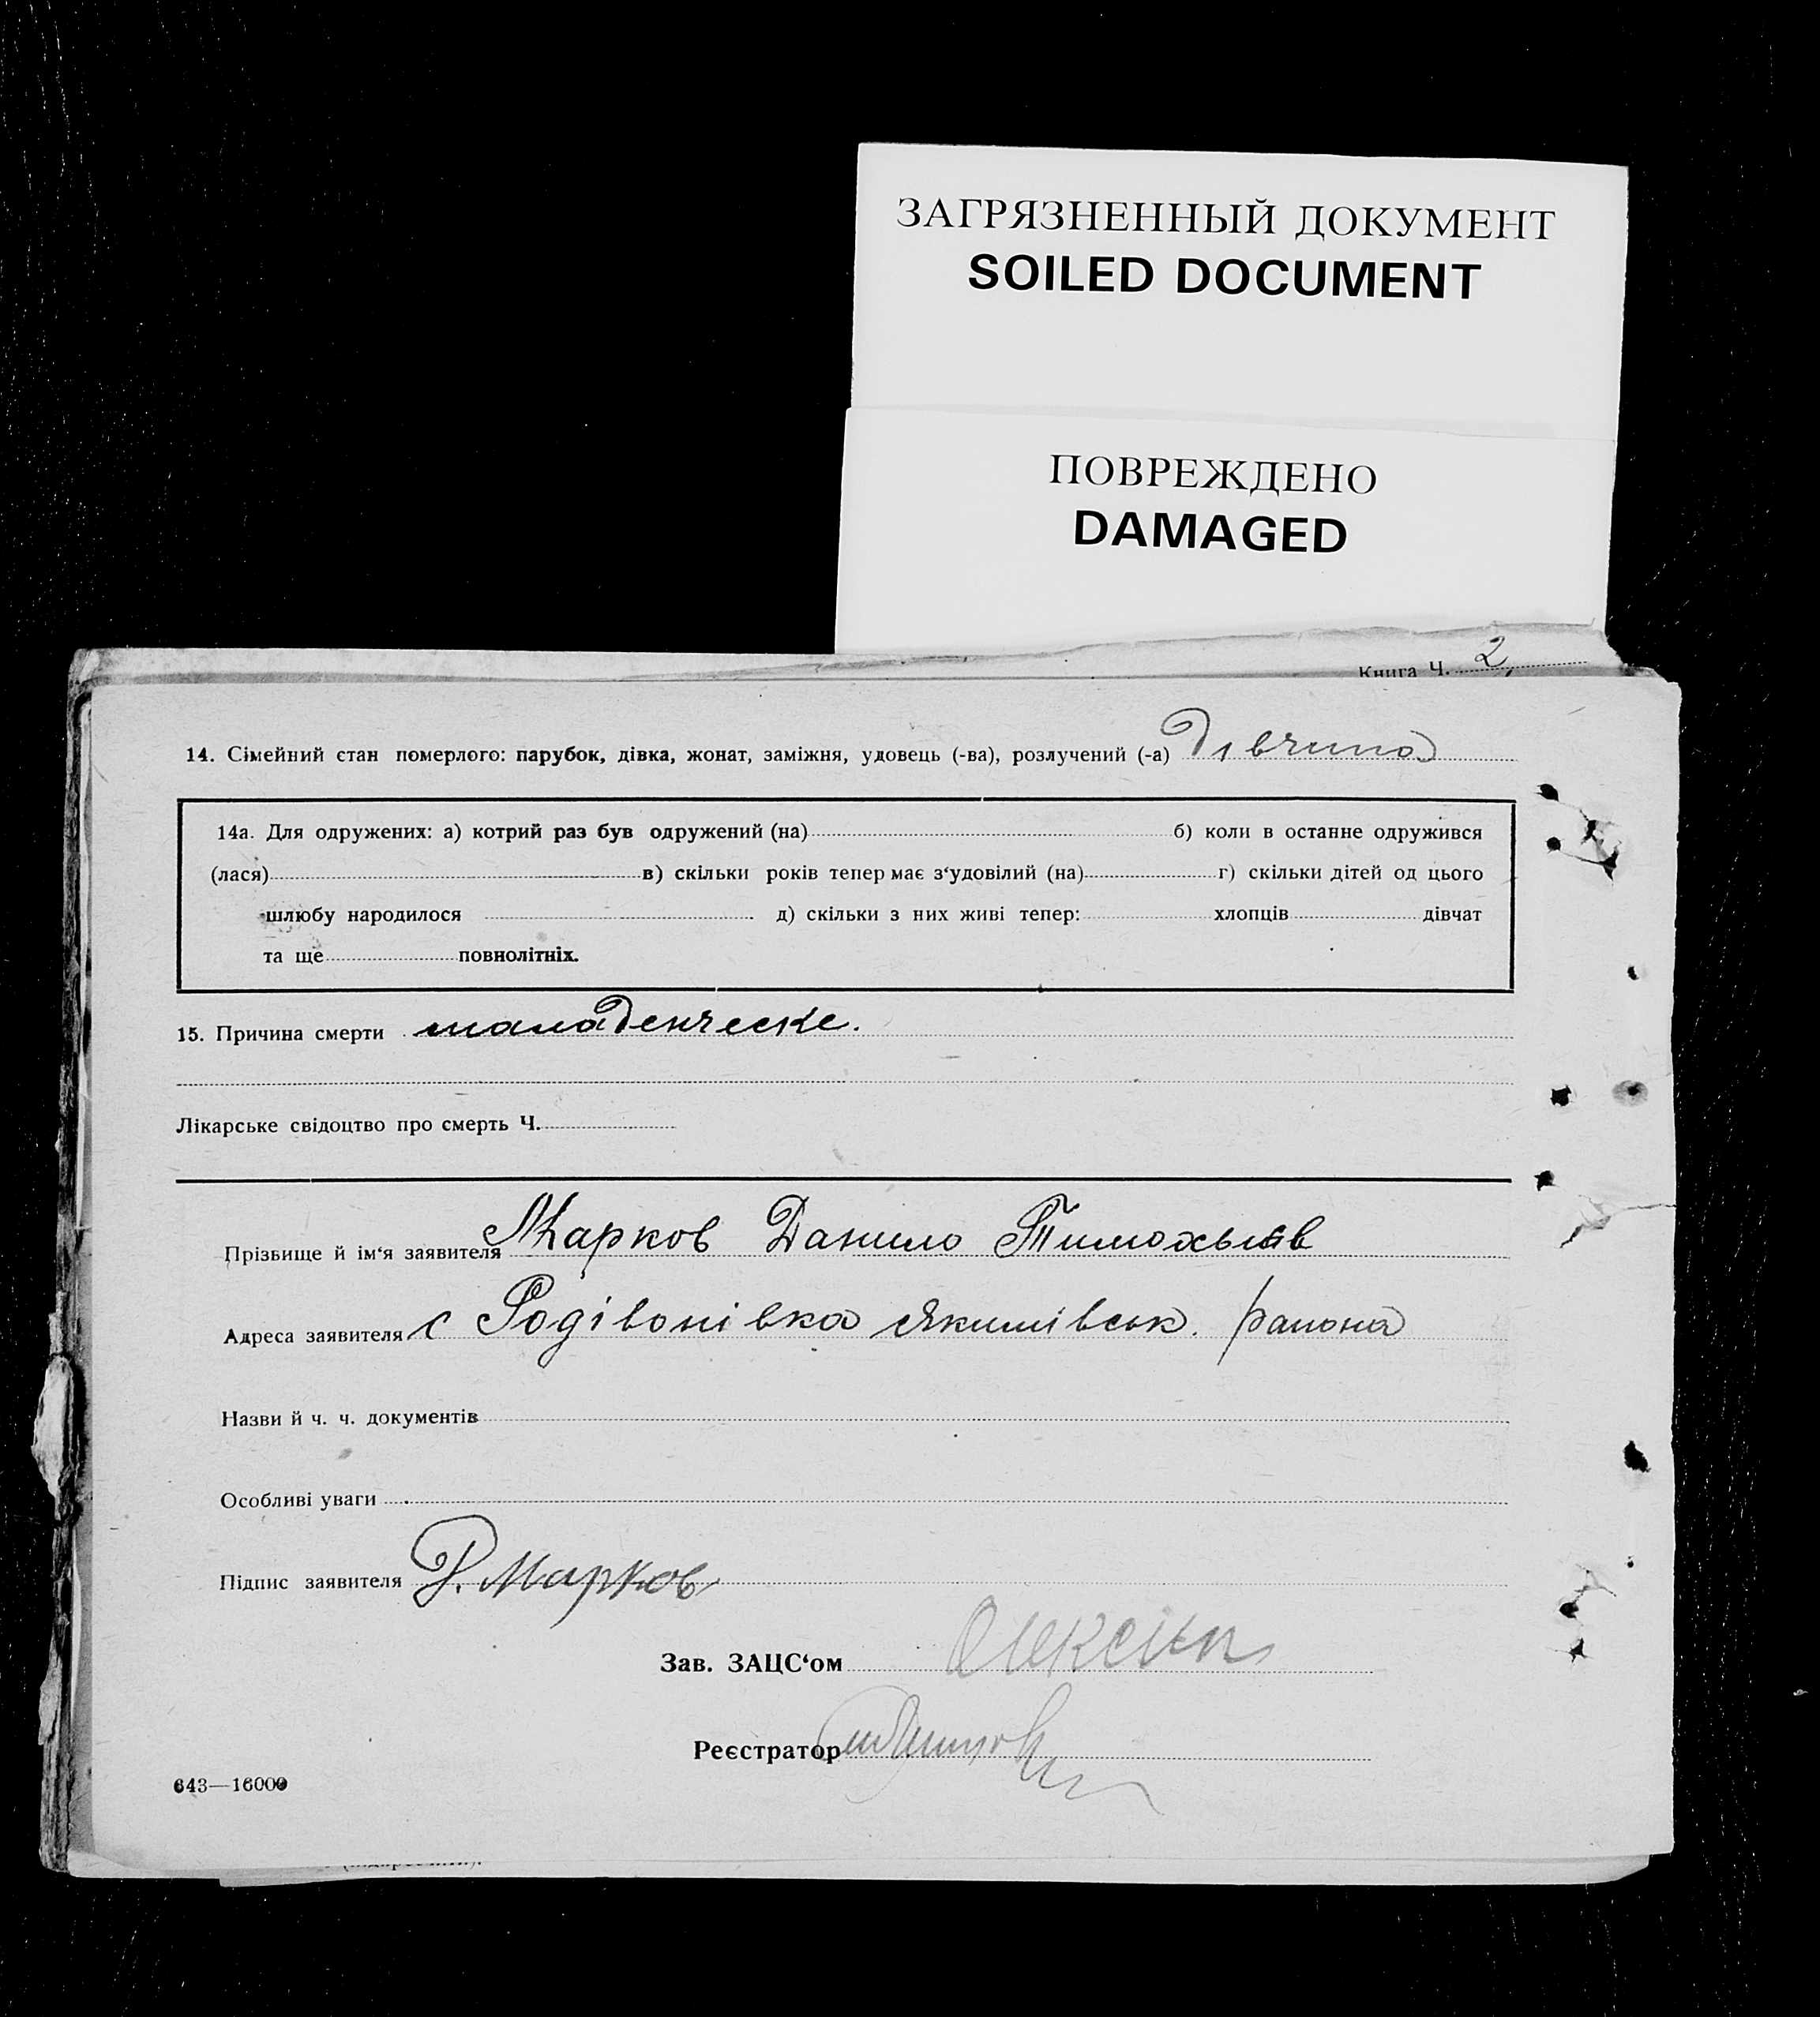 ЗАГРЯЗНЕННЫЙ ДОКУМЕНТ
SOILED DOCUMENT
ПОВРЕЖДЕНО
DAMAGED
Книга Ч. 2
14. Сімейний стан померлого: парубок, дівка, жонат, заміжня, удовець (-ва), розлучений (-а) Дівчина
14а. Для одружених: а) котрий раз був одружений (на) б) коли в останнє одружився
(лася) в) скільки років тепер має з‘удовілий (на) г) скільки дітей од цього
шлюбу народилося д) скільки з них живі тепер: хлопців дівчат
та ще повнолітніх.
15. Причина смерти маладенческе.
Лікарське свідоцтво про смерть Ч.
Прізвище й ім‘я заявителя Марков Данило
Адреса заявителя с Родівонівка Якимівськ. района
Назви й ч. ч. документів
Особливі уваги
Підпис заявителя Марков
Зав. ЗАЦС‘ом
Реєстратор
643—16000